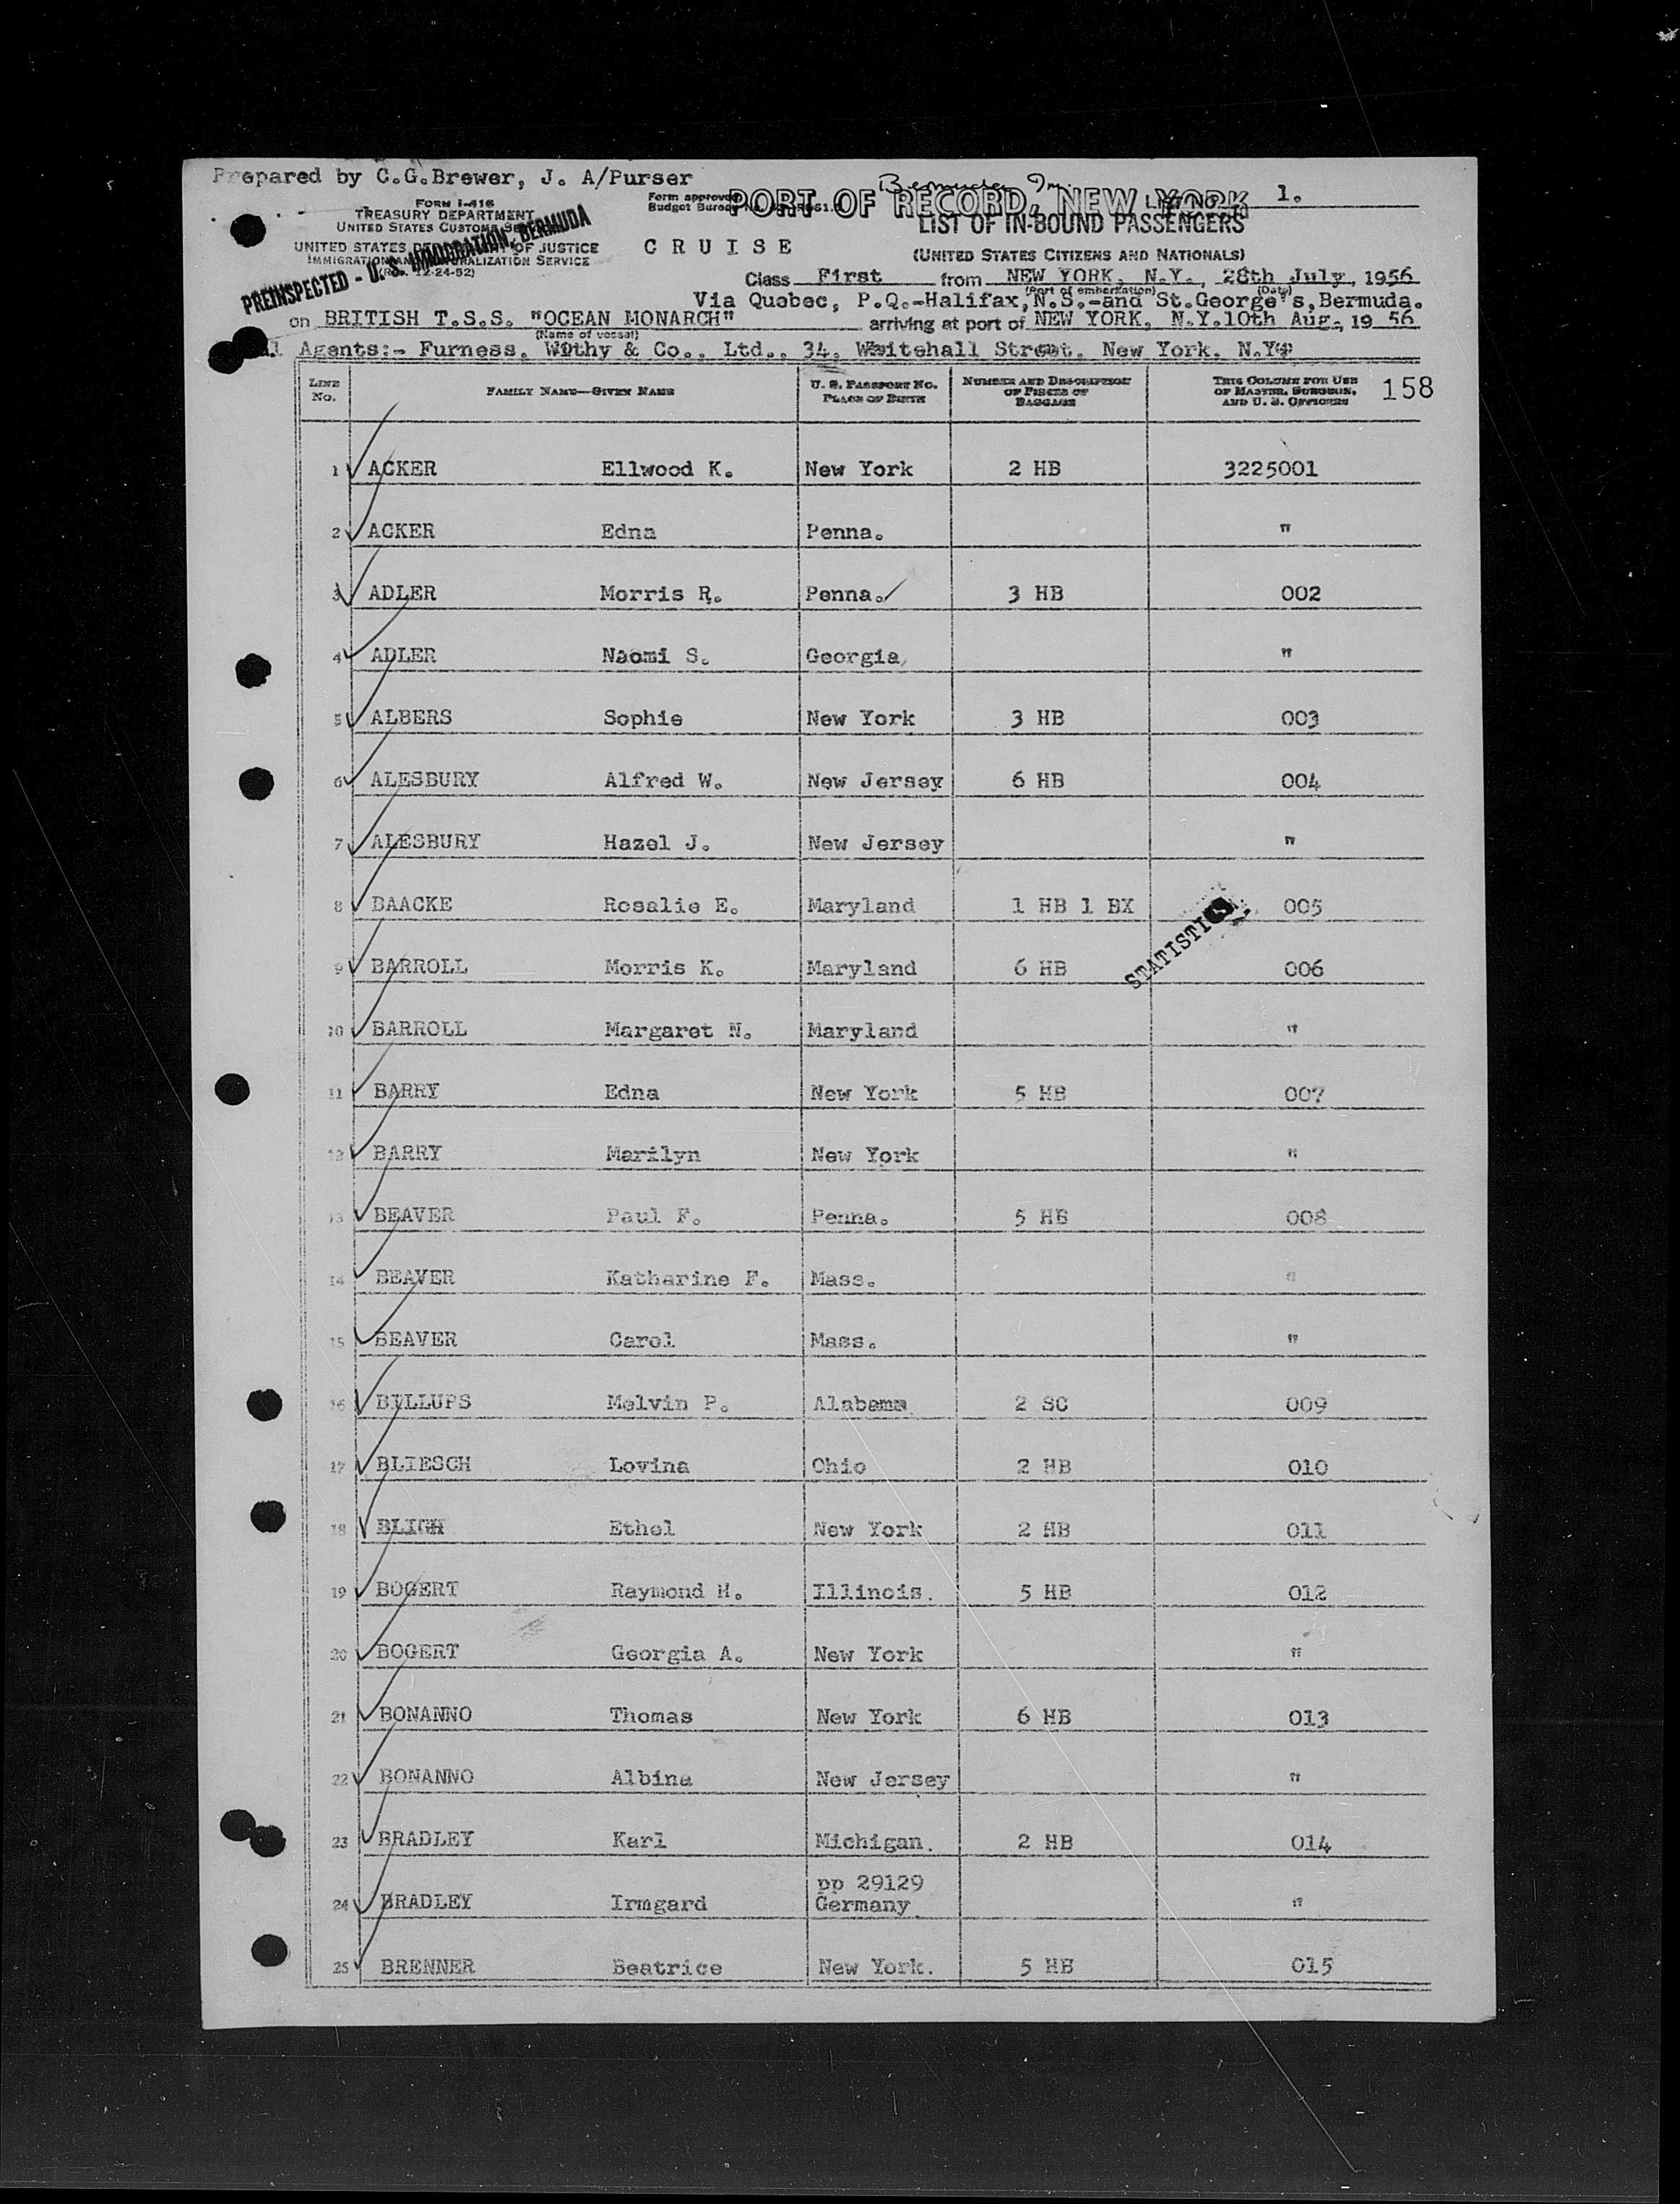 Prepared by C.G.Brewer, J. A/Purser
Bermuda
PORT OF RECORD, NEW YORK
1.
FORM I-416
TREASURY DEPARTMENT
UNITED STATES CUSTOMS SERVICE
UNITED STATES DEPARTMENT OF JUSTICE
IMMIGRATION AND NATURALIZATION SERVICE
12-24-52)
PREINSPECTED - U. S. IMMIGRATION, BERMUDA
Form approved
Budget Bureau No.
LIST OF IN-BOUND PASSENGERS
CRUISE
(UNITED STATES CITIZENS AND NATIONALS)
Class First from NEW YORK, N.Y., 28th July, 1956
(Port of embarkation) (Date)
Via Quebec, P.Q.-Halifax, N.S.-and St.George's, Bermuda.
on BRITISH T.S.S. "OCEAN MONARCH" arriving at port of NEW YORK, N.Y. 10th Aug., 19 56
(Name of vessel)
Agents:- Furness, Withy & Co., Ltd., 34, Whitehall Street, New York, N.Y.
LINE No. FAMILY NAME—GIVEN NAME U. S. PASSPORT NO. PLACE OF BIRTH NUMBER AND DESCRIPTION OF PIECES OF BAGGAGE THIS COLUMN FOR USE OF MASTER, SURGEON, AND U. S. OFFICERS 158
1 ACKER Ellwood K. New York 2 HB 3225001
2 ACKER Edna Penna. "
3 ADLER Morris R. Penna. 3 HB 002
4 ADLER Naomi S. Georgia "
5 ALBERS Sophie New York 3 HB 003
6 ALESBURY Alfred W. New Jersey 6 HB 004
7 ALESBURY Hazel J. New Jersey "
8 BAACKE Rosalie E. Maryland 1 HB 1 BX 005
STATISTICS
9 BARROLL Morris K. Maryland 6 HB 006
10 BARROLL Margaret N. Maryland "
11 BARRY Edna New York 5 HB 007
12 BARRY Marilyn New York "
13 BEAVER Paul F. Penna. 5 HB 008
14 BEAVER Katharine F. Mass. "
15 BEAVER Carol Mass. "
16 BILLUPS Melvin P. Alabama 2 SC 009
17 BLIESCH Lovina Ohio 2 HB 010
18 BLIGH Ethel New York 2 HB 011
19 BOGERT Raymond H. Illinois. 5 HB 012
20 BOGERT Georgia A. New York "
21 BONANNO Thomas New York 6 HB 013
22 BONANNO Albina New Jersey "
23 BRADLEY Karl Michigan. 2 HB 014
24 BRADLEY Irmgard pp 29129 Germany. "
25 BRENNER Beatrice New York. 5 HB 015